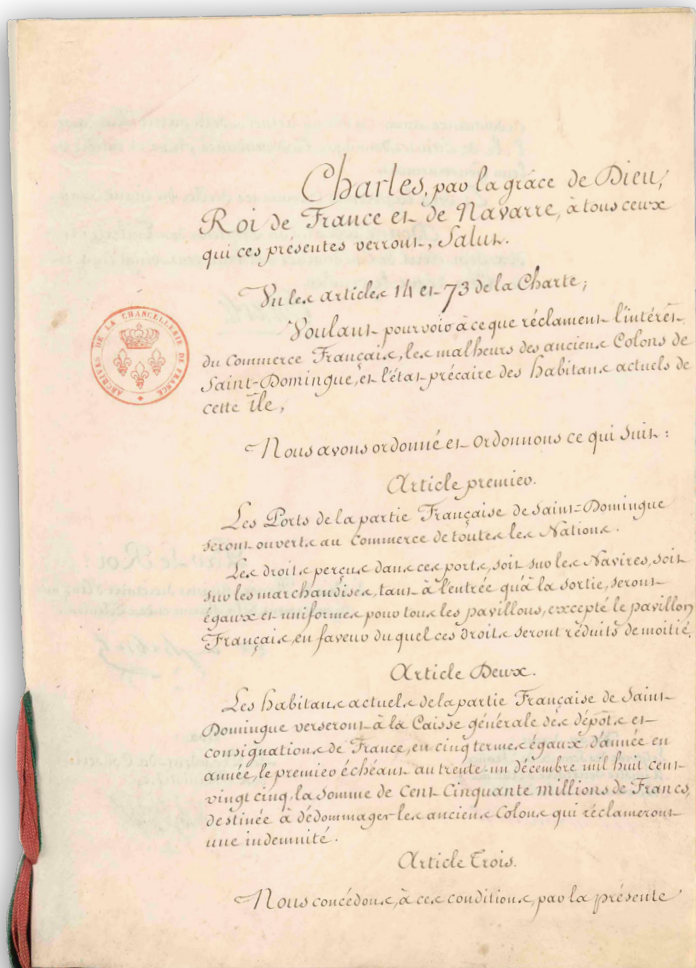 Charles, par la grâce de Dieu,
Roi de France et de Navarre, à tous ceux
qui ces présentes verront, Salut.
Vu les articles 14 et 73 de la Charte;
Voulant pourvoir à ce que réclament l'intérêt
du Commerce Français, les malheurs des anciens Colons de
Saint-Domingue, et l'état précaire des habitans actuels de
cette Île;
ARCHIVES DE LA CHANCELLERIE DE FRANCE
Nous avons ordonné et ordonnons ce qui suit:
Article premier.
Les Ports de la partie Française de Saint-Domingue
seront ouverts au Commerce de toutes les Nations.
Les droits perçus dans ces ports, soit sur les Navires, soit
sur les marchandises, tant à l'entrée qu'à la sortie, seront
égaux et uniformes pour tous les pavillons, excepté le pavillon
Français, en faveur du quel ces droits seront réduits de moitié.
Article Deux.
Les habitans actuels de la partie Française de Saint-
Domingue verseront à la Caisse générale des dépôts et
consignations de France, en cinq termes égaux d'année en
année, le premier échéant au trente-un décembre mil huit cent
vingt cinq, la somme de Cent Cinquante millions de Francs,
destinée à dédommager les anciens Colons qui réclameront
une indemnité.
Article Trois.
Nous concédons, à ces conditions, par la présente